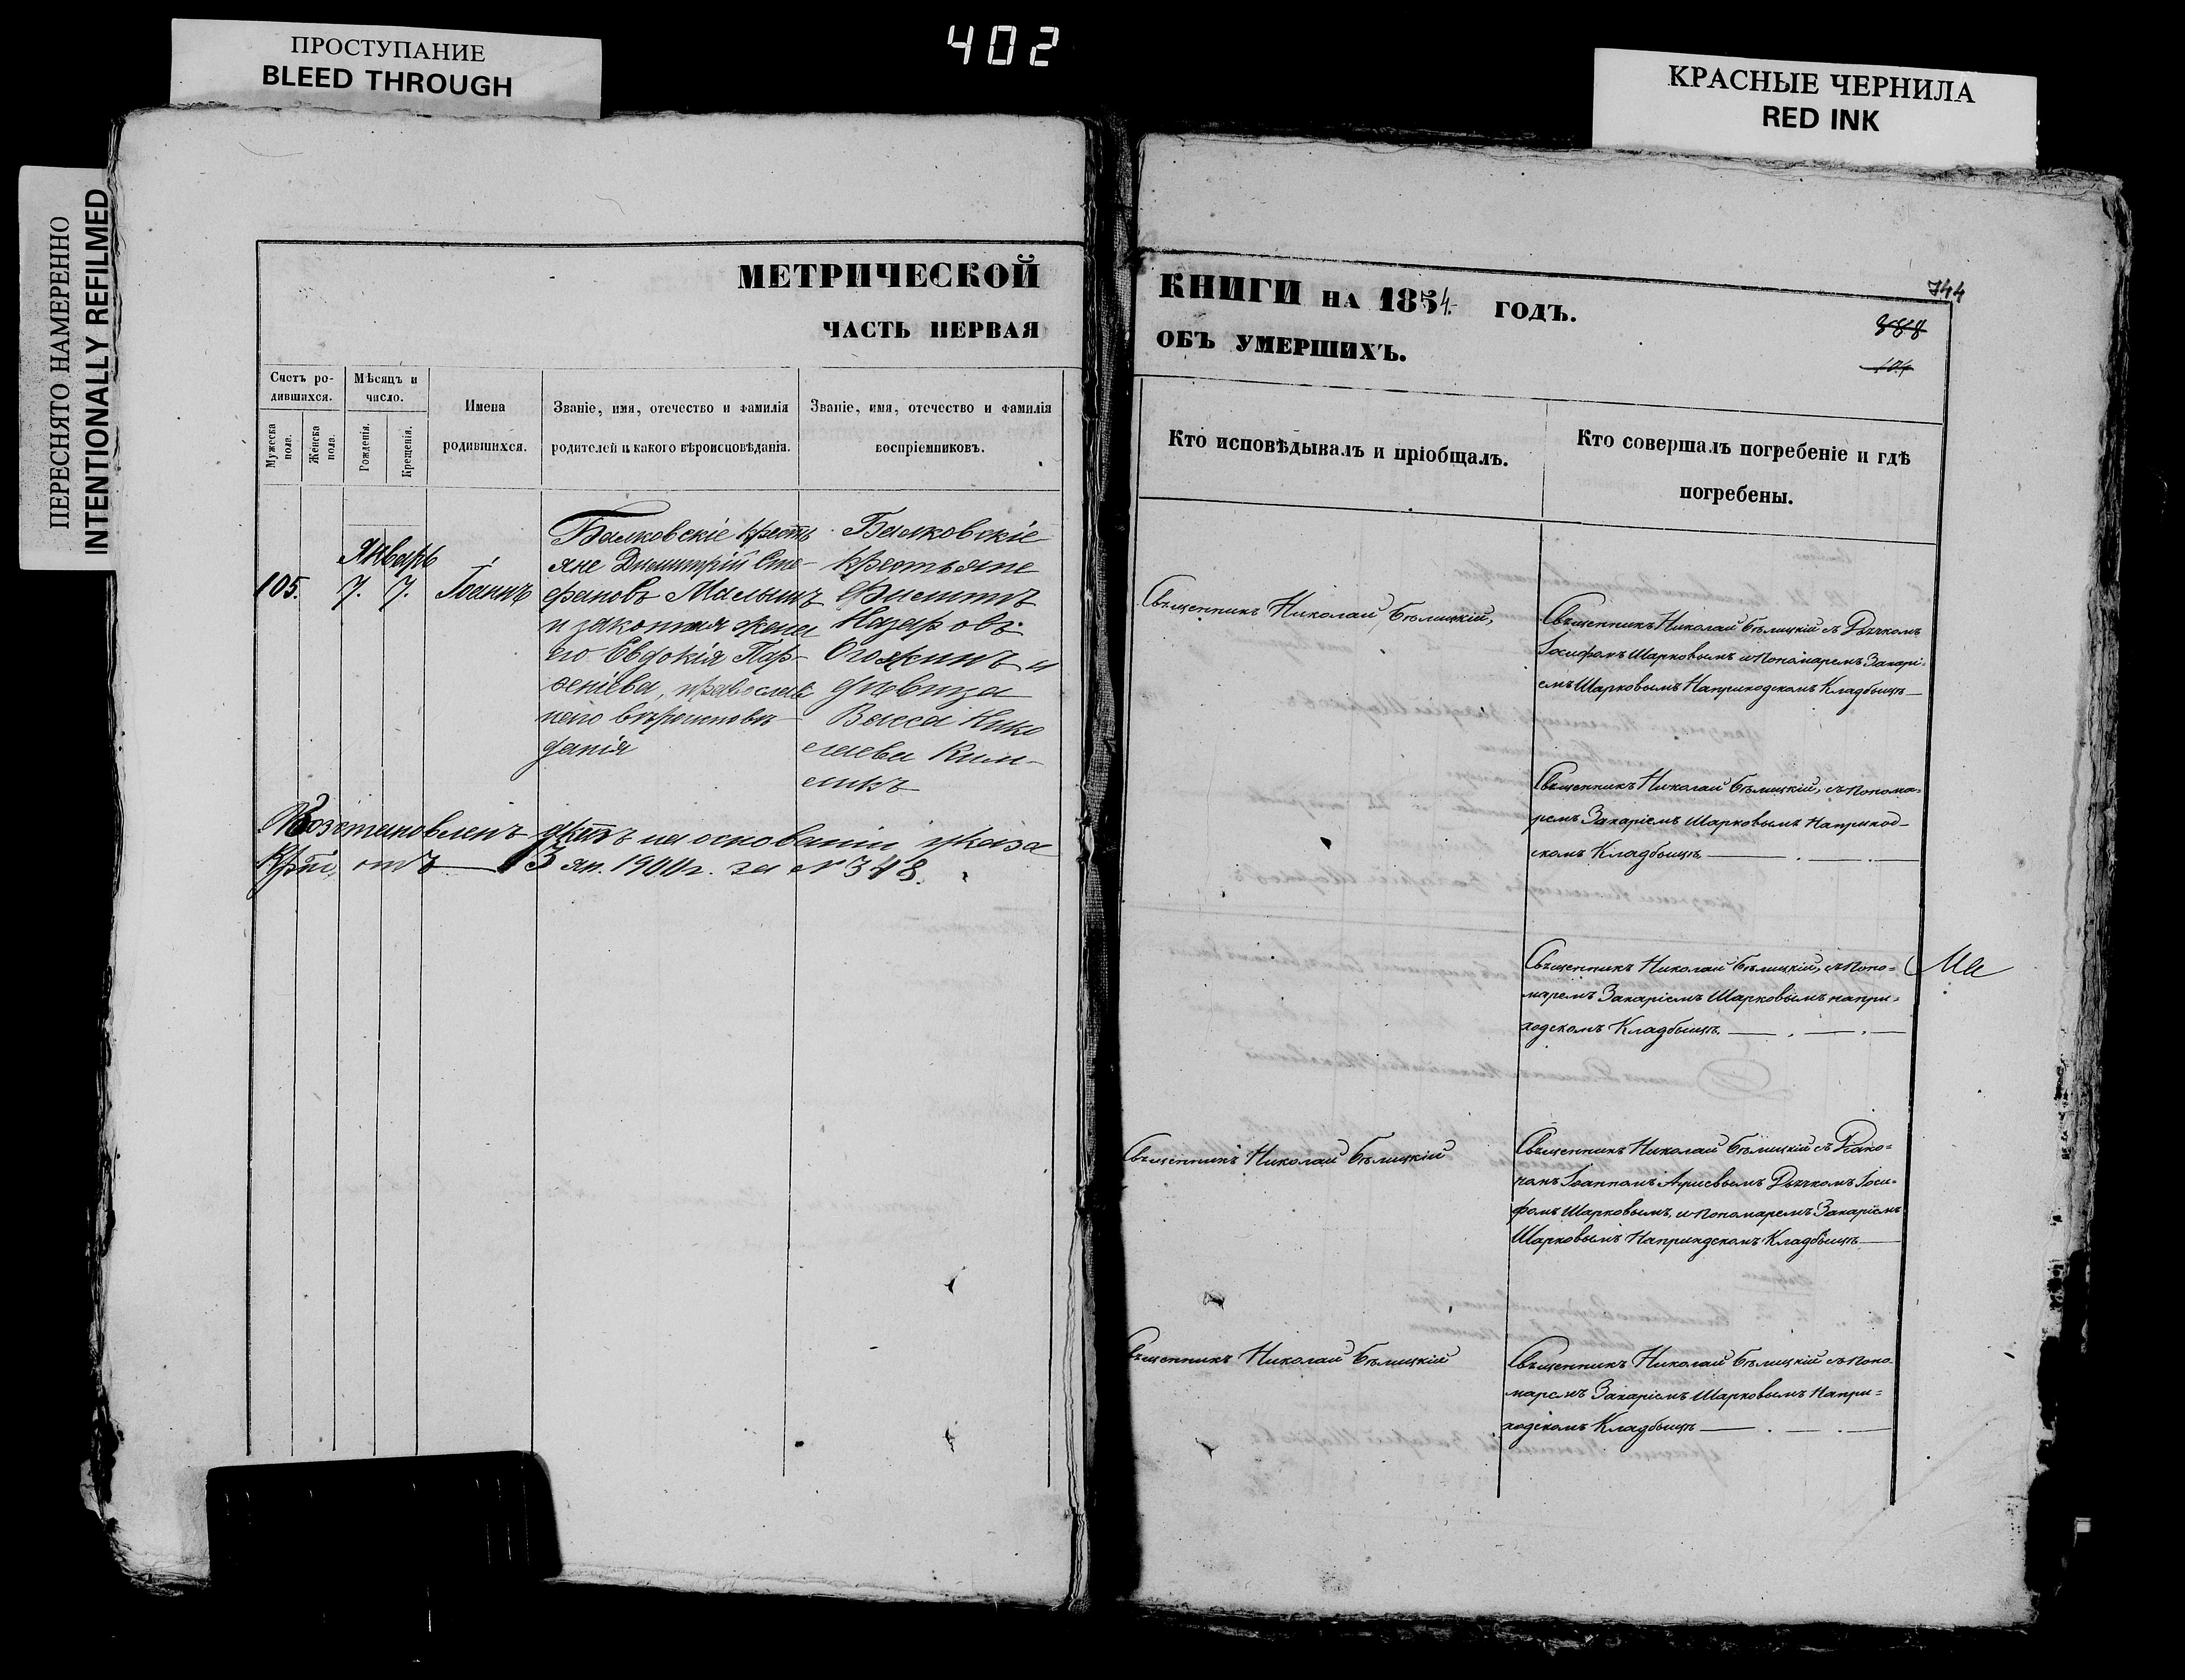 ПРОСТУПАНИЕ
BLEED THROUGH
402
КРАСНЫЕ ЧЕРНИЛА
RED INK
ПЕРЕСНЯТО НАМЕРЕННО
INTENTIONALLY REFILMED
МЕТРИЧЕСКОЙ
ЧАСТЬ ПЕРВАЯ
Счетъ ро-
дившихся.
Мужеска
пола.
Женска
пола.
Мѣсяцъ и
число.
Рожденія.
Крещенія.
Имена
родившихся.
Званіе, имя, отечество и фамилія
родителей и какого вѣроисповѣданія.
Званіе, имя, отечество и фамилія
воспріемниковъ.
Январь
105. 7. 7. Іоаннъ
Балковскіе кресть
яне Димитрій Сте-
фановъ Малышъ
и законная жена
его Евдокія Пар-
ѳеніева, православ
наго вѣроисповѣ
данія
Балковскіе
крестьяне
Филиппъ
Назаровъ
и
дѣвица
Васса Нико
лаева
Возстановленъ актъ на основаніи указа
отъ 13 ян. 1900 г. за № 348.
КНИГИ НА 1854. ГОДЪ.
ОБЪ УМЕРШИХЪ.
744
388
104
Кто исповѣдывалъ и пріобщалъ.
Кто совершалъ погребеніе и гдѣ
погребены.
Священникъ Николай Бѣлицкій,
Священникъ Николай Бѣлицкій съ Дьячкомъ
Іосифомъ Шарковымъ и Пономаремъ Захарі-
емъ Шарковымъ На приходскомъ Кладбищѣ
Священникъ Николай Бѣлицкій, съ Понома-
ремъ Захаріемъ Шарковымъ На приход-
скомъ Кладбищѣ
Священникъ Николай Бѣлицкій, съ Поно=
маремъ Захаріемъ Шарковымъ на при=
ходскомъ Кладбищѣ.
Священникъ Николай Бѣлицкій
Священникъ Николай Бѣлицкій съ Діако=
номъ Іоанномъ Дьячкомъ Іоси=
фомъ Шарковымъ, и Пономаремъ Захаріемъ
Шарковымъ На приходскомъ Кладбищѣ
Священникъ Николай Бѣлицкій
Священникъ Николай Бѣлицкій съ Поно
маремъ Захаріемъ Шарковымъ На при=
ходскомъ Кладбищѣ